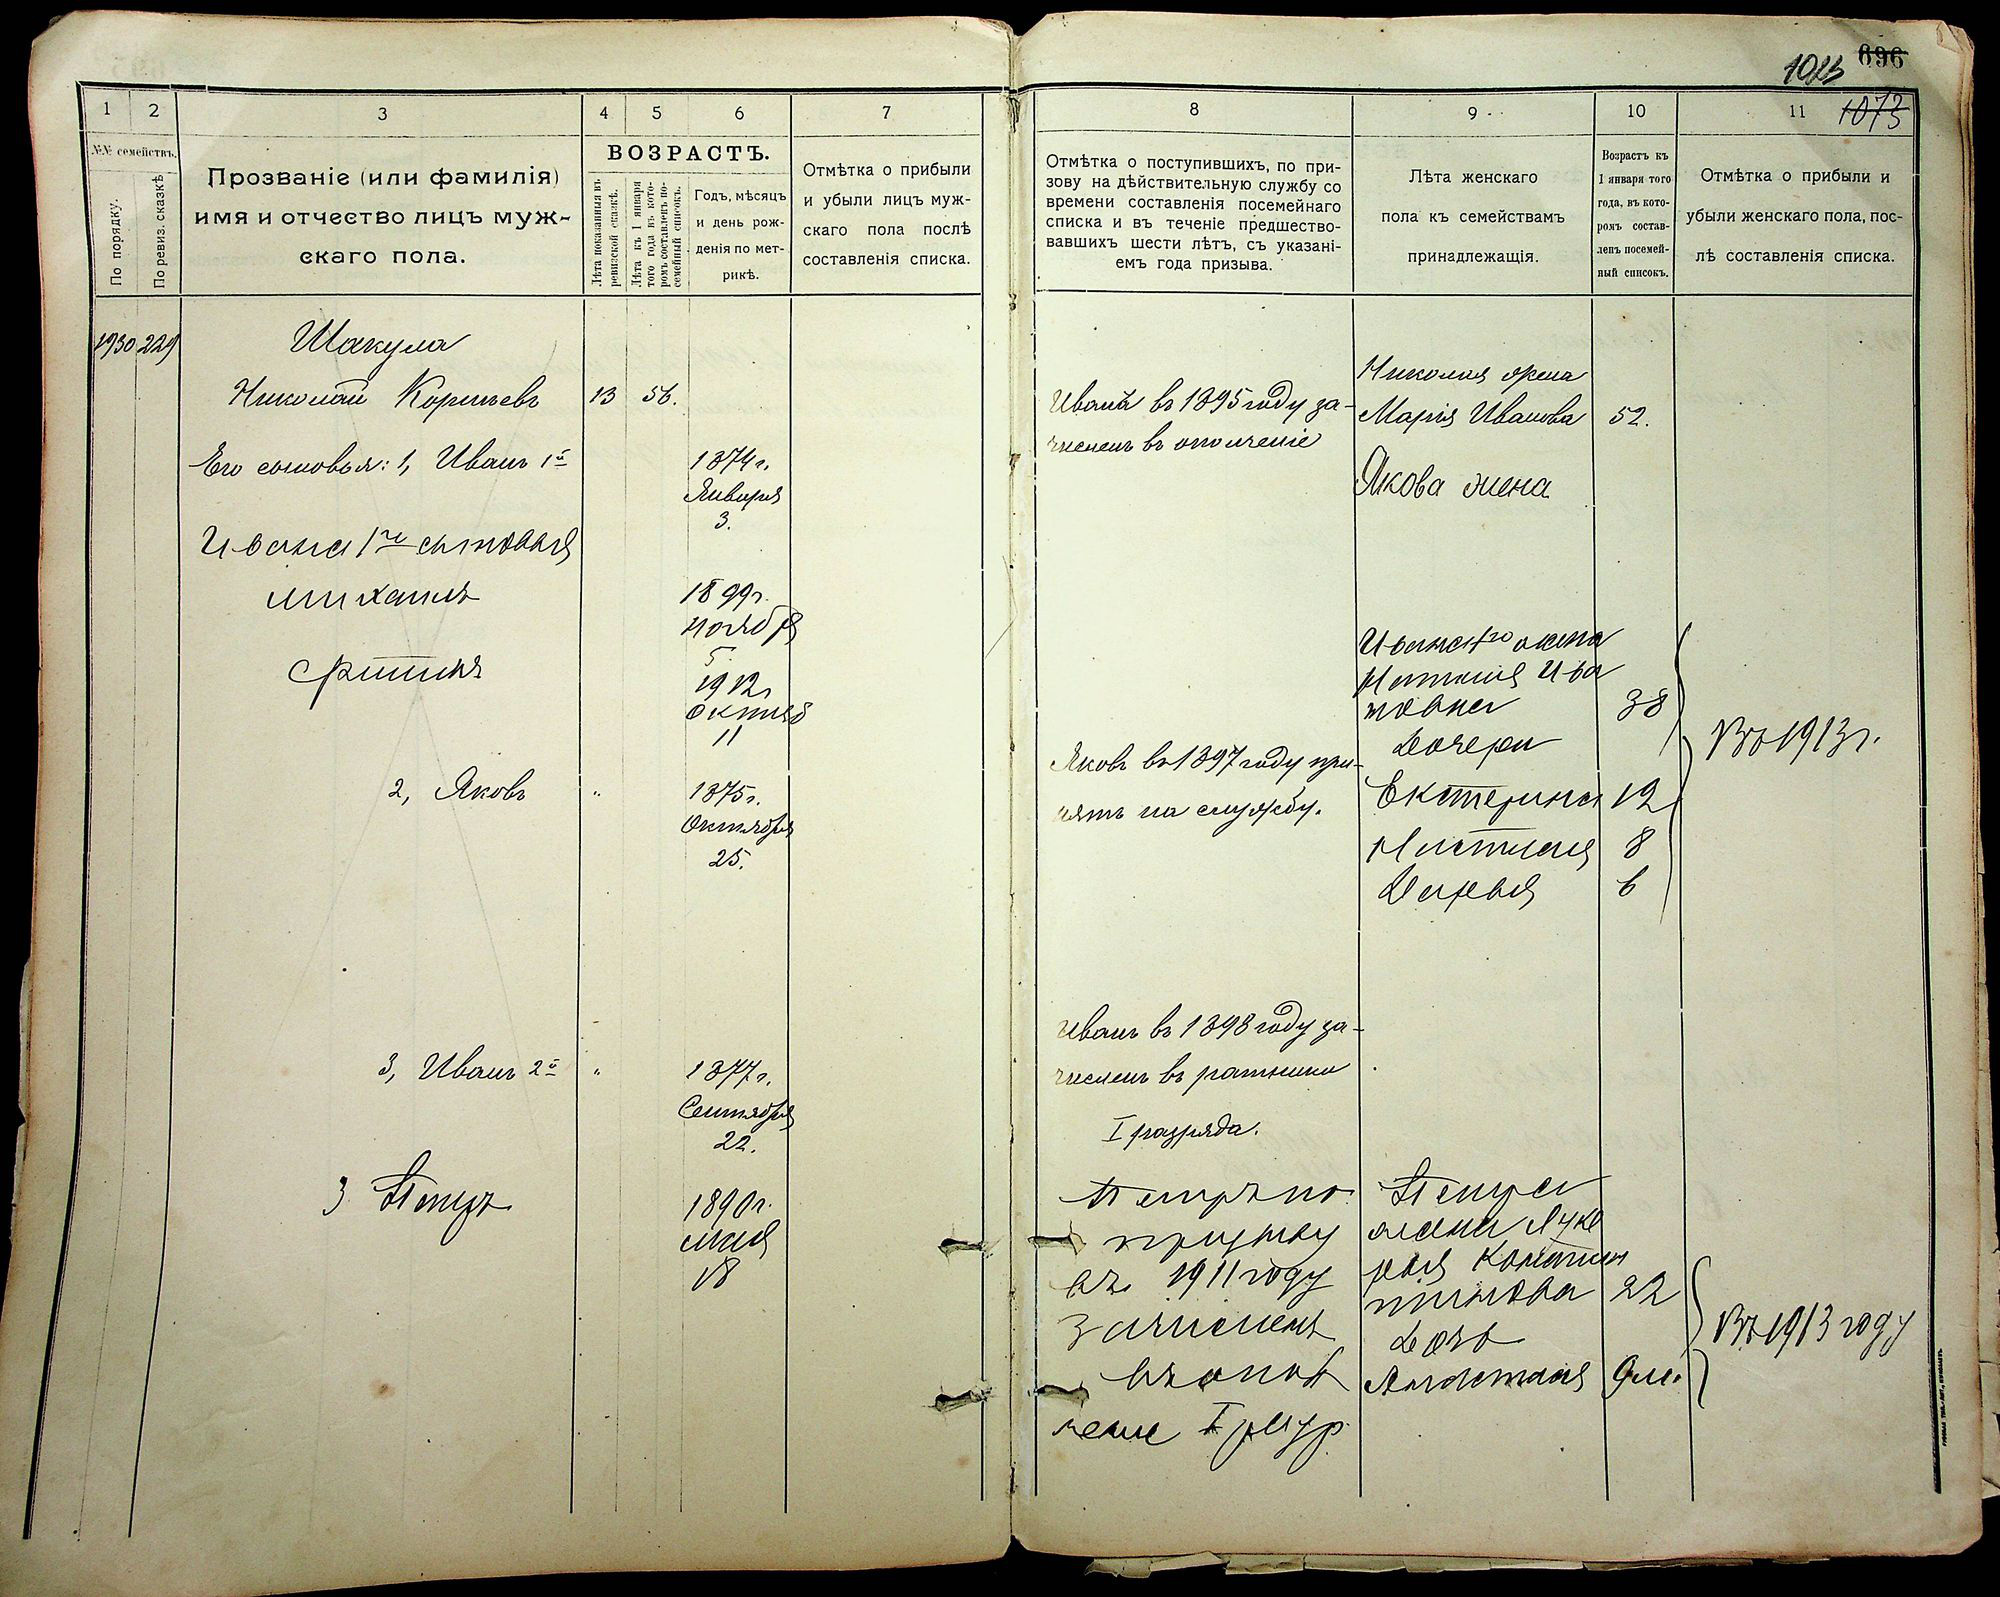 696
1023
1073
1
2
3
4
5
6
7
№№ семействъ.
По порядку.
По ревиз. сказкѣ
Прозваніе (или фамилія)
имя и отчество лицъ муж-
скаго пола.
ВОЗРАСТЪ.
Лѣта показанныя въ
ревизской сказкѣ.
Лѣта къ 1 января
того года въ кото-
ромъ составленъ по-
семейный списокъ.
Годъ, мѣсяцъ
и день рож-
денія по мет-
рикѣ.
Отмѣтка о прибыли
и убыли лицъ муж-
скаго пола послѣ
составленія списка.
1930 229
Шакула
Николай Корнѣевъ 13 56.
Его сыновья: 1, Иванъ 1й 1874 г.
Января
3.
Ивана 1го сыновья
Михаилъ 1899 г.
Ноября
5
Филипъ 1912 г
Октяб
11
2, Яковъ „ 1875 г.
Октября
25.
3, Иванъ 2й „ 1877 г.
Сентября
22.
3 Петръ 1890 г.
Мая
18
8
9
10
11
Отмѣтка о поступившихъ, по при-
зову на дѣйствительную службу со
времени составленія посемейнаго
списка и въ теченіе предшество-
вавшихъ шести лѣтъ, съ указані-
емъ года призыва.
Лѣта женскаго
пола къ семействамъ
принадлежащія.
Возрастъ къ
1 января того
года, въ кото-
ромъ состав-
ленъ посемей-
ный списокъ.
Отмѣтка о прибыли и
убыли женскаго пола, пос-
лѣ составленія списка.
Иванъ въ 1895 году за-
численъ въ ополченіе
Яковъ въ 1897 году при-
нятъ на службу.
Иванъ въ 1898 году за-
численъ въ ратники
I разряда.
Петръ по
призыву
въ 1911 году
зачисленъ
въ опол
чение I разр.
Николая жена
Марія Иванова 52.
Якова жена
Ивана 1го жена
Наталия Ива
новна 38
Дочери
Екатерина 12
Наталия 8
Дарья 6
Въ 1913 г.
Петра
жена Лукe
рья Констан
тинова 22
Дочь
Анастасия 9 м.
Въ 1913 году